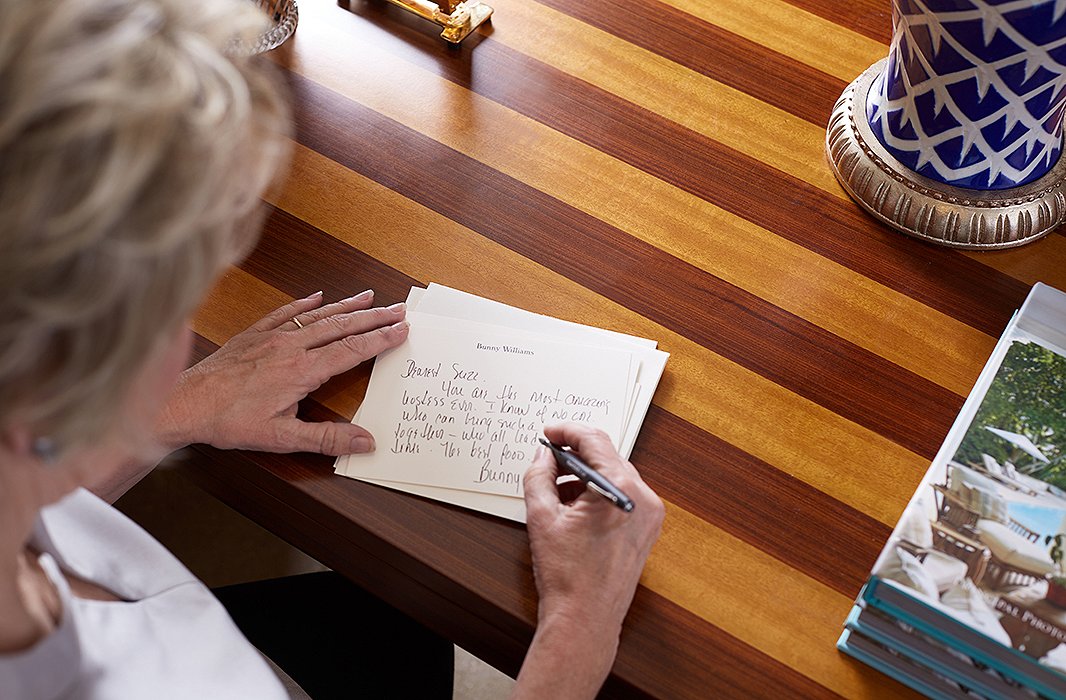 Bunny Williams
Dearest Suze.
You are the most amazing
hostess ever. I know of no one
who can bring such a
together – who all
time. The best food.
Bunny
PHOTO